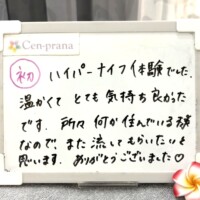 Cen-prana
初 ハイパーナイフ体験でした。
温かくて とても気持ち良かった
です。所々 何か住んでいる様
なので、また流してもらいたいと
思います。ありがとうございました♡